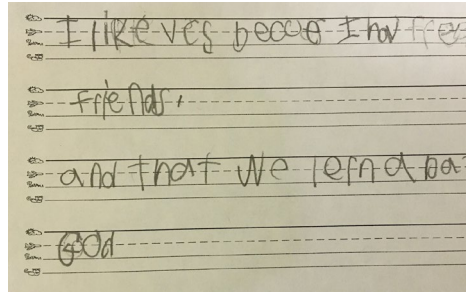 I like ves becoue I hav free
friends,
and that we lern a ba
God